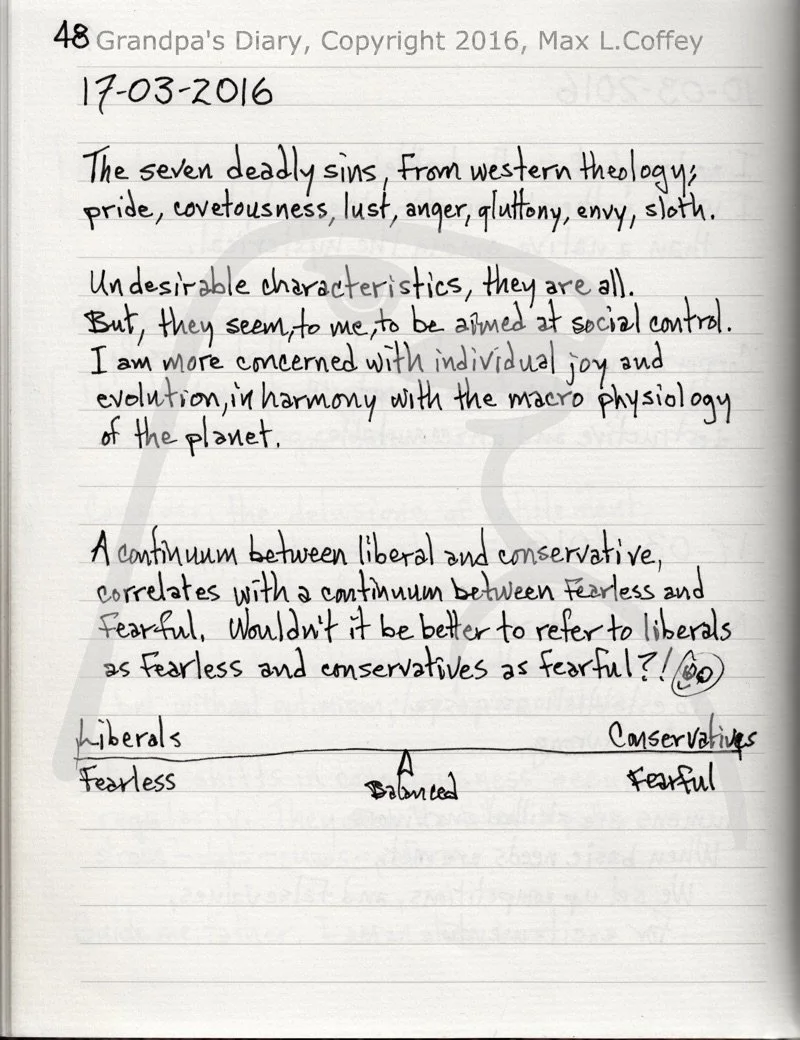 48 Grandpa's Diary, Copyright 2016, Max L.Coffey
17-03-2016
The seven deadly sins, From western theology;
pride, covetousness, lust, anger, gluttony, envy, sloth.
Undesirable characteristics, they are all.
But, they seem, to me, to be aimed at social control.
I am more concerned with individual joy and
evolution, in harmony with the macro physiology
of the planet.
A continuum between liberal and conservative,
correlates with a continuum between Fearless and
Fearful. Wouldn't it be better to refer to liberals
as Fearless and conservatives as fearful?!
Liberals Conservatives
Fearless Balanced Fearful